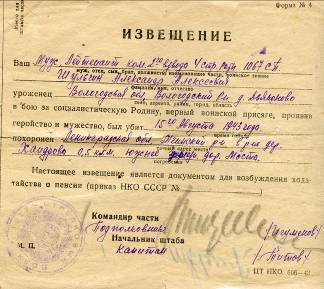 Форма № 4
ИЗВЕЩЕНИЕ
Ваш Муж, Лейтенант ком. 2го взвода 4 стр. роты 1067 С.П.
муж, отец, сын, брат, должность наименование части, воинское звание
Шульгин Александр Алексеевич
фамилия, имя, отчество
уроженец Вологодская обл, Вологодский р-н д.
край, район, город, область
в бою за социалистическую Родину, верный воинской присяге, проявив
геройство и мужество, был убит 15го Августа 1943 года
похоронен Ленинградская обл. р-н дер.
0,5 клм. южней дер.
Настоящее извещение является документом для возбуждения хода-
тайства о пенсии (приказ НКО СССР №
Командир части
Подполковник
Начальник штаба
Капитан
М. П.
ЦТ НКО. 606-42